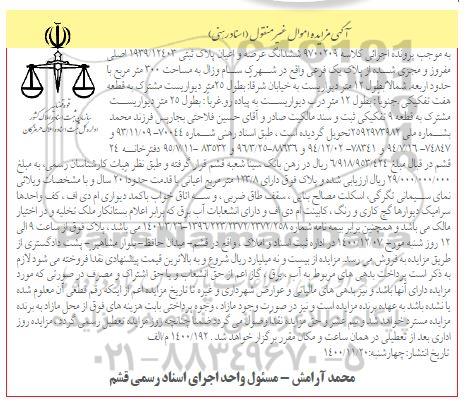 آگهی مزایده اموال غیر منقول (اسناد رهنی)
به موجب پرونده اجرائی کلاسه ۹۷۰۰۲۰۹ ششدانگ عرصه و اعیان پلاک ثبتی ۱۹۳۹/۱۲۴۰۳ اصلی
مفروز و مجزی شده از پلاک یک فرعی واقع در شهرک سام وزال به مساحت ۳۰۰ متر مربع با
حدود اربعه، شمالا: بطول ۱۲ متر درب واریست به خیابان شرقا: بطول ۲۵متر دیواریست مشترک به قطعه
هفت تفکیکی جنوبا : بطول ۱۲ متر درب دیواریست به پیاده رو غربا : بطول ۲۵ متر دیواریست
مشترک به قطعه ۹ تفکیکی ثبت و سند مالکیت صادر و آقای حسین فلاحتی بجاربس فرزند محمد
بشماره ملی ۲۵۹۲۹۷۳۹۸۲تحویل گردیده است ، طبق اسناد رهنی شماره ۷۰۰۴۴ - ۹۳/۱۱/۰۹ و
۷۴۸۴۷- ۹۴/۰۷/۱۶ و ۷۸۳۴۱- ۹۴/۱۲/۰۲ و ۸۸۶۳۶- ۹۶/۳/۲۵ و ۸۳۵۳۲ - ۹۵/۰۷/۱۱ دفترخانه ۲۴
قشم در قبال مبلغ ۶/۹۱۸/۹۵۳/۴۲۴ ریال در رهن بانک سینا شعبه قشم قرار گرفته و طبق نظر هیات کارشناسان رسمی ، به مبلغ
۲۹/۰۰۰/۰۰۰/۰۰۰ ریال ارزیابی شده و پلاک فوق دارای ۱۲۳/۸ متر مربع اعیانی با قدمت حدود ۲۰ سال و با مشخصات ویلائی
نمای سیمانی نگرگی، اسکلت مصالح بنایی ، سقف طاق ضربی ، و سه اتاق خواب باکمد دیواری ام دی اف ، کف واحدها
سرامیک دیوارها گچ کاری و رنگ ، کابینت ام دی اف و دارای انشعابات آب برق که برابر اعلام بستانکار ملک تخلیه و در اختیار
مالک می باشد و همچنین برابر بیمه نامه شماره می باشد ، پلاک فوق از ساعت ۹ الی
۱۲ روز شنبه مورخ ۱۴۰۰/۱۲/۰۷ در اداره ثبت اسناد و املاک ، واقع در قشم- میدان حافظ- بلوار مشاهیر – پشت دادگستری از
طریق مزایده به فروش می رسد. مزایده از بیست و نه میلیارد ریال شروع و به بالاترین قیمت پیشنهادی نقدا فروخته می شود لازم
به ذکر است پرداخت بدهی های مربوط به آب، برق ، گاز اعم از حق انشعاب و یا حق اشتراک و مصرف در صورتی که مورد
مزایده دارای آنها باشد و نیز بدهی های مالیاتی و عوارض شهرداری و غیره تا تاریخ مزایده اعم از اینکه رقم قطعی آن معلوم شده
یا نشده باشد به عهده برنده مزایده است و نیز در صورت وجود مازاد ، وجوه پرداختی بابت هزینه های فوق از محل مازاد به برنده
مزایده مسترد خواهد شد و نیم عشر و حق مزایده نقدا وصول می گردد ضمنا چنانچه روز مزایده تعطیل رسمی گردد، مزایده روز
اداری بعد از تعطیلی در همان ساعت و مکان مقرر برگزار خواهد شد . ۱۴۰۰/۱۹۲ م/الف
تاریخ انتشار: چهارشنبه: ۱۴۰۰/۱۱/۲۰
محمد آرامش – مسئول واحد اجرای اسناد رسمی قشم
۰۲۱-۸۸۳۴۹۶۷۰-۵